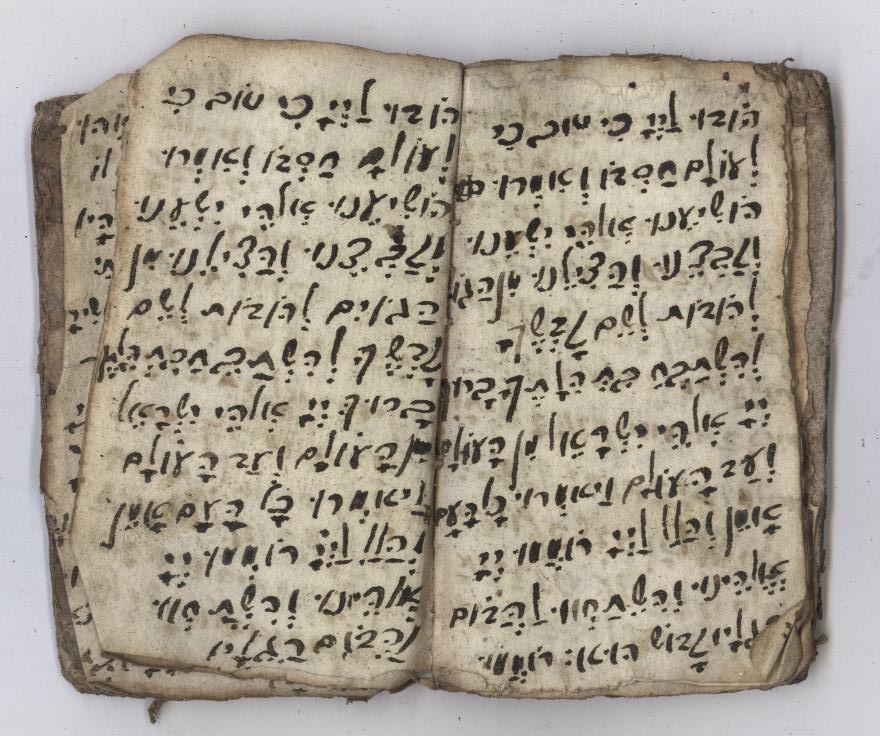 הוֹדוּ לַיְיָ כִּי טוֹב כִּי
לְעוֹלָם חַסְדּוֹ וְאִמְרוּ
הוֹשִׁיעֵנוּ אֱלֹהֵי יִשְׁעֵנוּ
וְקַבְּצֵנוּ וְהַצִּילֵנוּ מִן הַגּוֹ
לְהוֹדוֹת לְשֵׁם קָדְשֶׁךָ
לְהִשְׁתַּבֵּחַ בִּתְהִלָּתֶךָ בָּרוּךְ
יְיָ אֱלֹהֵי יִשְׂרָאֵל מִן הָעוֹלָם
וְעַד הָעוֹלָם וַיֹּאמְרוּ כָל הָעָם
אָמֵן וְהַלֵּל לַיְיָ רוֹמְמוּ יְיָ
אֱלֹהֵינוּ וְהִשְׁתַּחֲווּ לַהֲדוֹם
רַגְלָיו קָדוֹשׁ הוּא: רוֹמְמוּ
הוֹדוּ לַיְיָ כִּי טוֹב כִּי
לְעוֹלָם חַסְדּוֹ וְאִמְרוּ
הוֹשִׁיעֵנוּ אֱלֹהֵי יִשְׁעֵנוּ
וְקַבְּצֵנוּ וְהַצִּילֵנוּ מִן
הַגּוֹיִם לְהוֹדוֹת לְשֵׁם
קָדְשֶׁךָ לְהִשְׁתַּבֵּחַ
בָּרוּךְ יְיָ אֱלֹהֵי יִשְׂרָאֵל
מִן הָעוֹלָם וְעַד הָעוֹלָם
וַיֹּאמְרוּ כָּל הָעָם אָמֵן
וְהַלֵּל לַיְיָ רוֹמְמוּ יְיָ
אֱלֹהֵינוּ וְהִשְׁתַּחֲווּ
לַהֲדוֹם רַגְלָיו